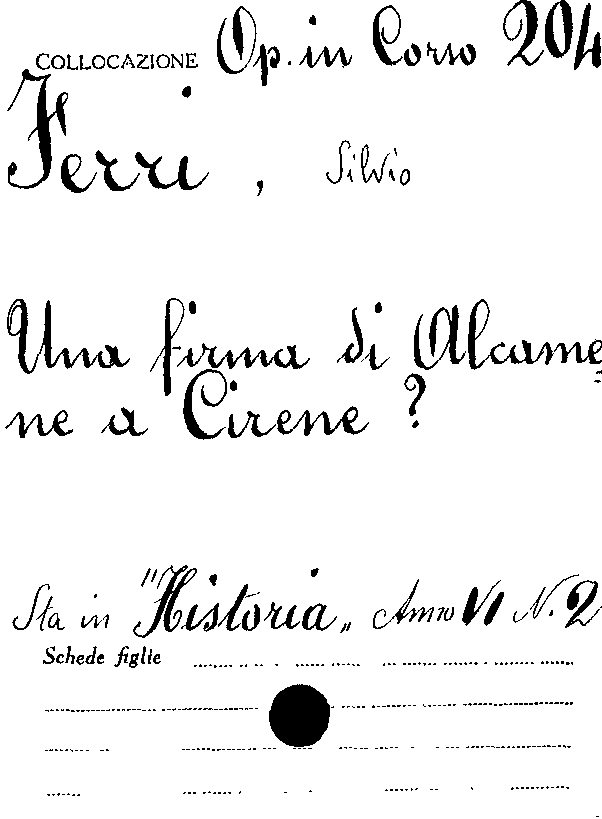 COLLOCAZIONE Op. in Corso 204
Ferri, Silvio
Una firma di Alcame=
ne a Cirene ?
Sta in "Historia„ Anno VI N. 2
Schede figlie